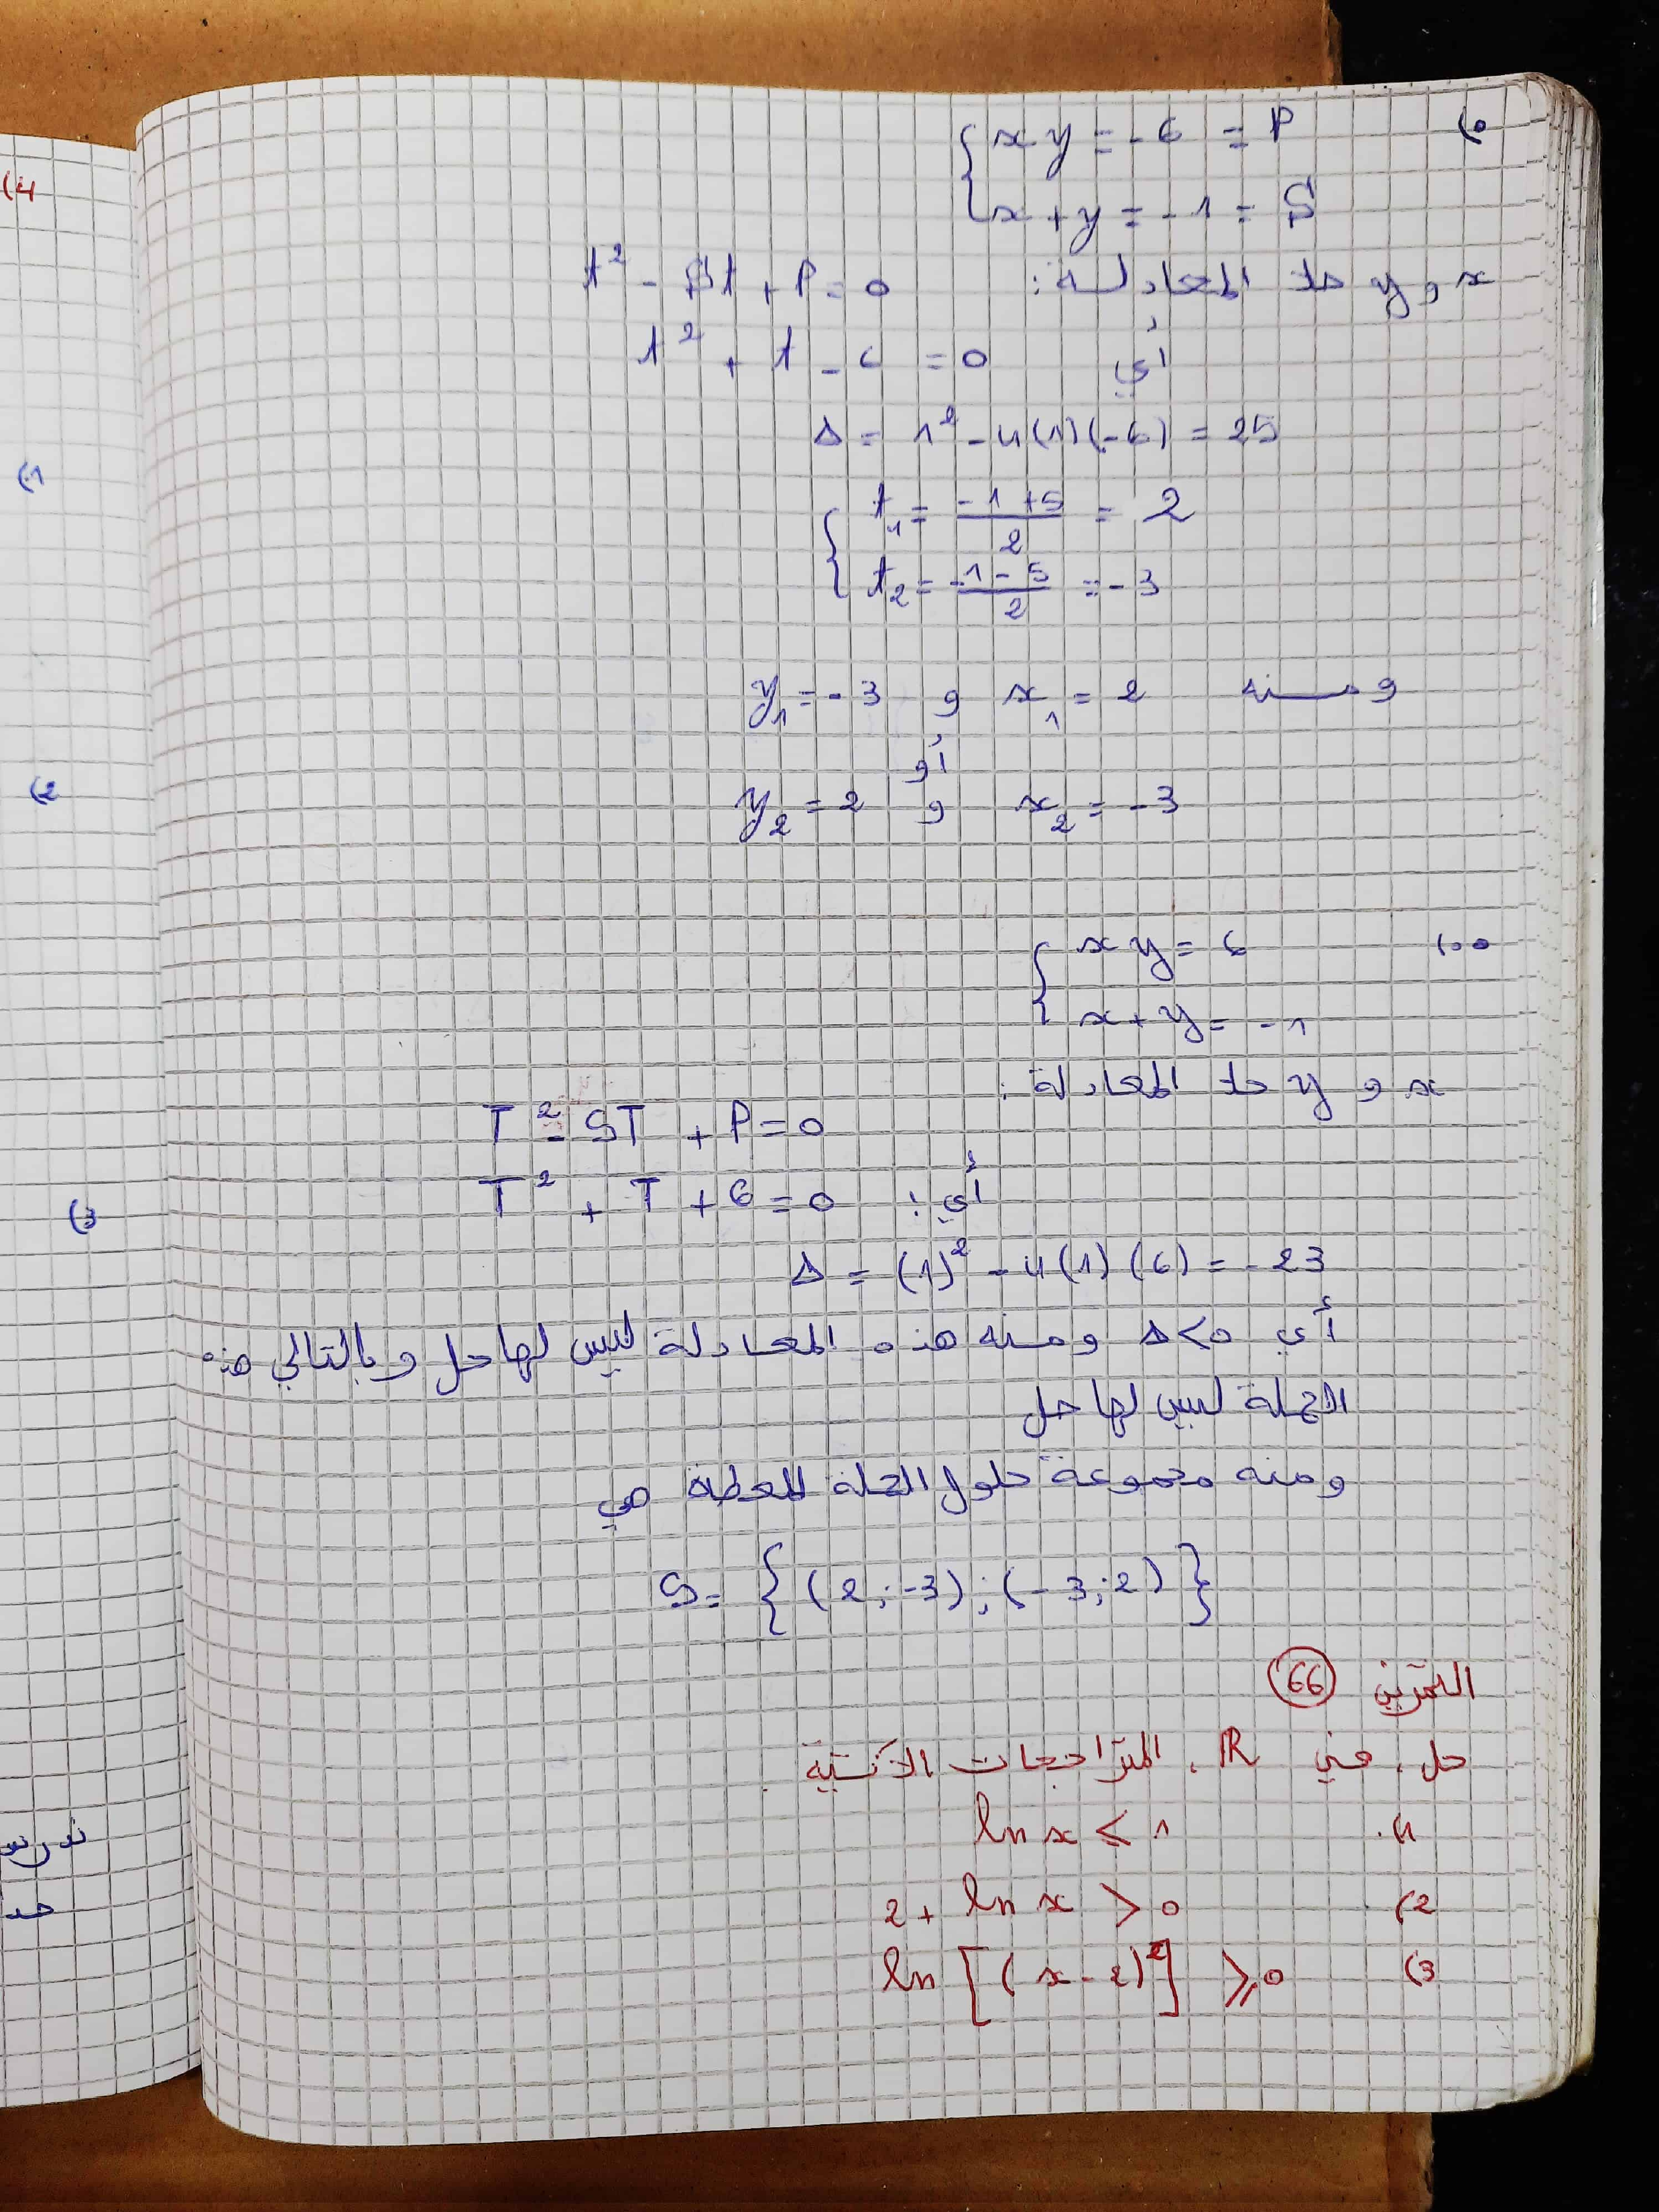 •) { xy = -6 = P
x + y = -1 = S
x و y حلا المعادلة : t² - St + P = 0
أي t² + t - 6 = 0
Δ = 1² - 4(1)(-6) = 25
{ t₁ = (-1+5)/2 = 2
t₂ = (-1-5)/2 = -3
ومنه x₁ = 2 و y₁ = -3
أو
x₂ = -3 و y₂ = 2
••) { xy = 6
x + y = -1
x و y حلا المعادلة :
T² - ST + P = 0
أي : T² + T + 6 = 0
Δ = (1)² - 4(1)(6) = -23
أي Δ<0 ومنه هذه المعادلة ليس لها حل وبالتالي هذه
الجملة ليس لها حل
ومنه مجموعة حلول الجملة المعطاة هي
S = {(2;-3);(-3;2)}
التمرين 66
حل، في ℝ، المتراجحات الآتية
1) ln x ⩽ 1
2) 2 + ln x > 0
3) ln[(x-2)²] ⩾ 0
4)
1)
2)
3)